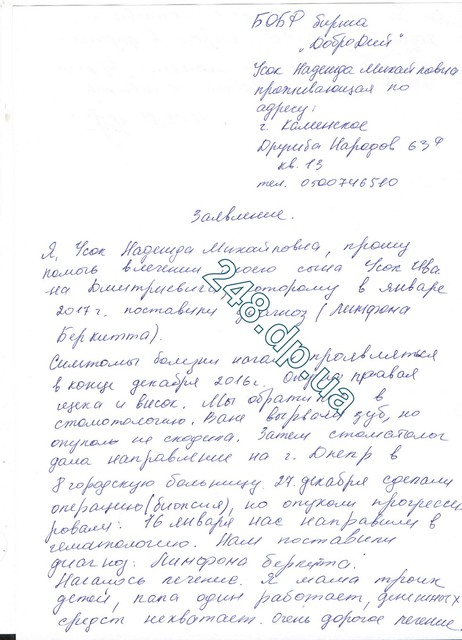 БОБФ биржа
„ДоброДий"
Усок Надежда Михайловна
проживающая по
адресу:
г. Каменское
Дружба Народов 63
кв. 13
тел. 0500746510
Заявление.
Я, Усок Надежда Михайловна, прошу
помочь в лечении моего сына Усок Ива
на Дмитриевича которому в январе
2017г. поставили диагноз (Лимфома
Беркитта).
Симптомы болезни начали проявляться
в конце декабря 2016г. правая
щека и висок. Мы обратились в
стоматологию. Ване вырвали зуб, но
опухоль не сходила. Затем стоматолог
дала направление на г. Днепр в
8 городскую больницу. 27. декабря сделали
операцию (биопсия), но опухоли прогресси
ровали. 16 января нас направили в
гематологию. Нам поставили
диагноз: Лимфома беркитта.
Началось лечение. Я мама троих
детей, папа один работает, денежных
средств нехватает. очень дорогое лечение,
248.dp.ua